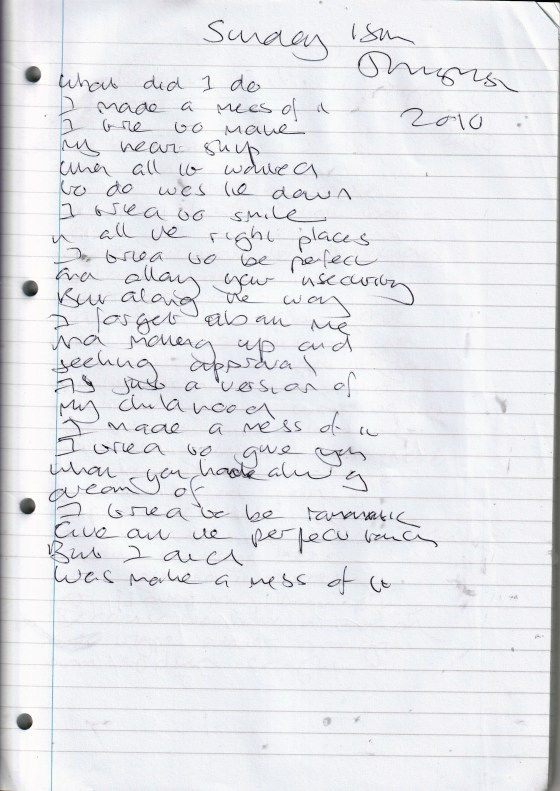 Sunday 15th
2010
What did I do
I made a mess of it
I tried to make
my heart skip
when all it wanted
to do was lie down
I tried to smile
in all the right places
I tried to be perfect
and allay your insecurity
But along the way
I forgot about me
And making up and
seeking approval
Is just a version of
my childhood
I made a mess of it
I tried to give you
what you had always
dreamt of
I tried to be romantic
Give all the perfect
But I did
was make a mess of it